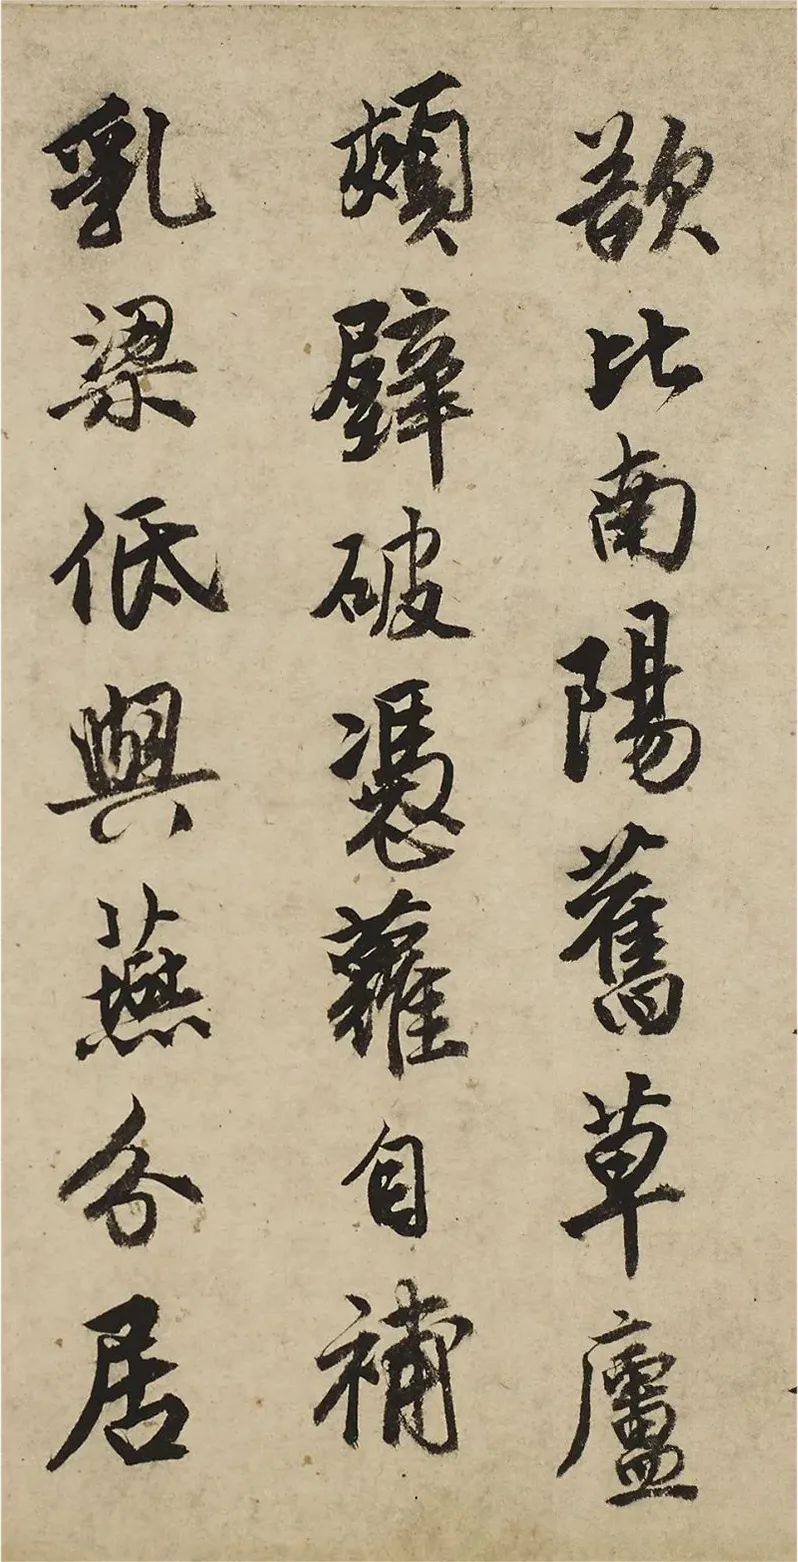 欲比南陽舊草廬
頹壁破憑蘿自補
乳梁低與燕分居